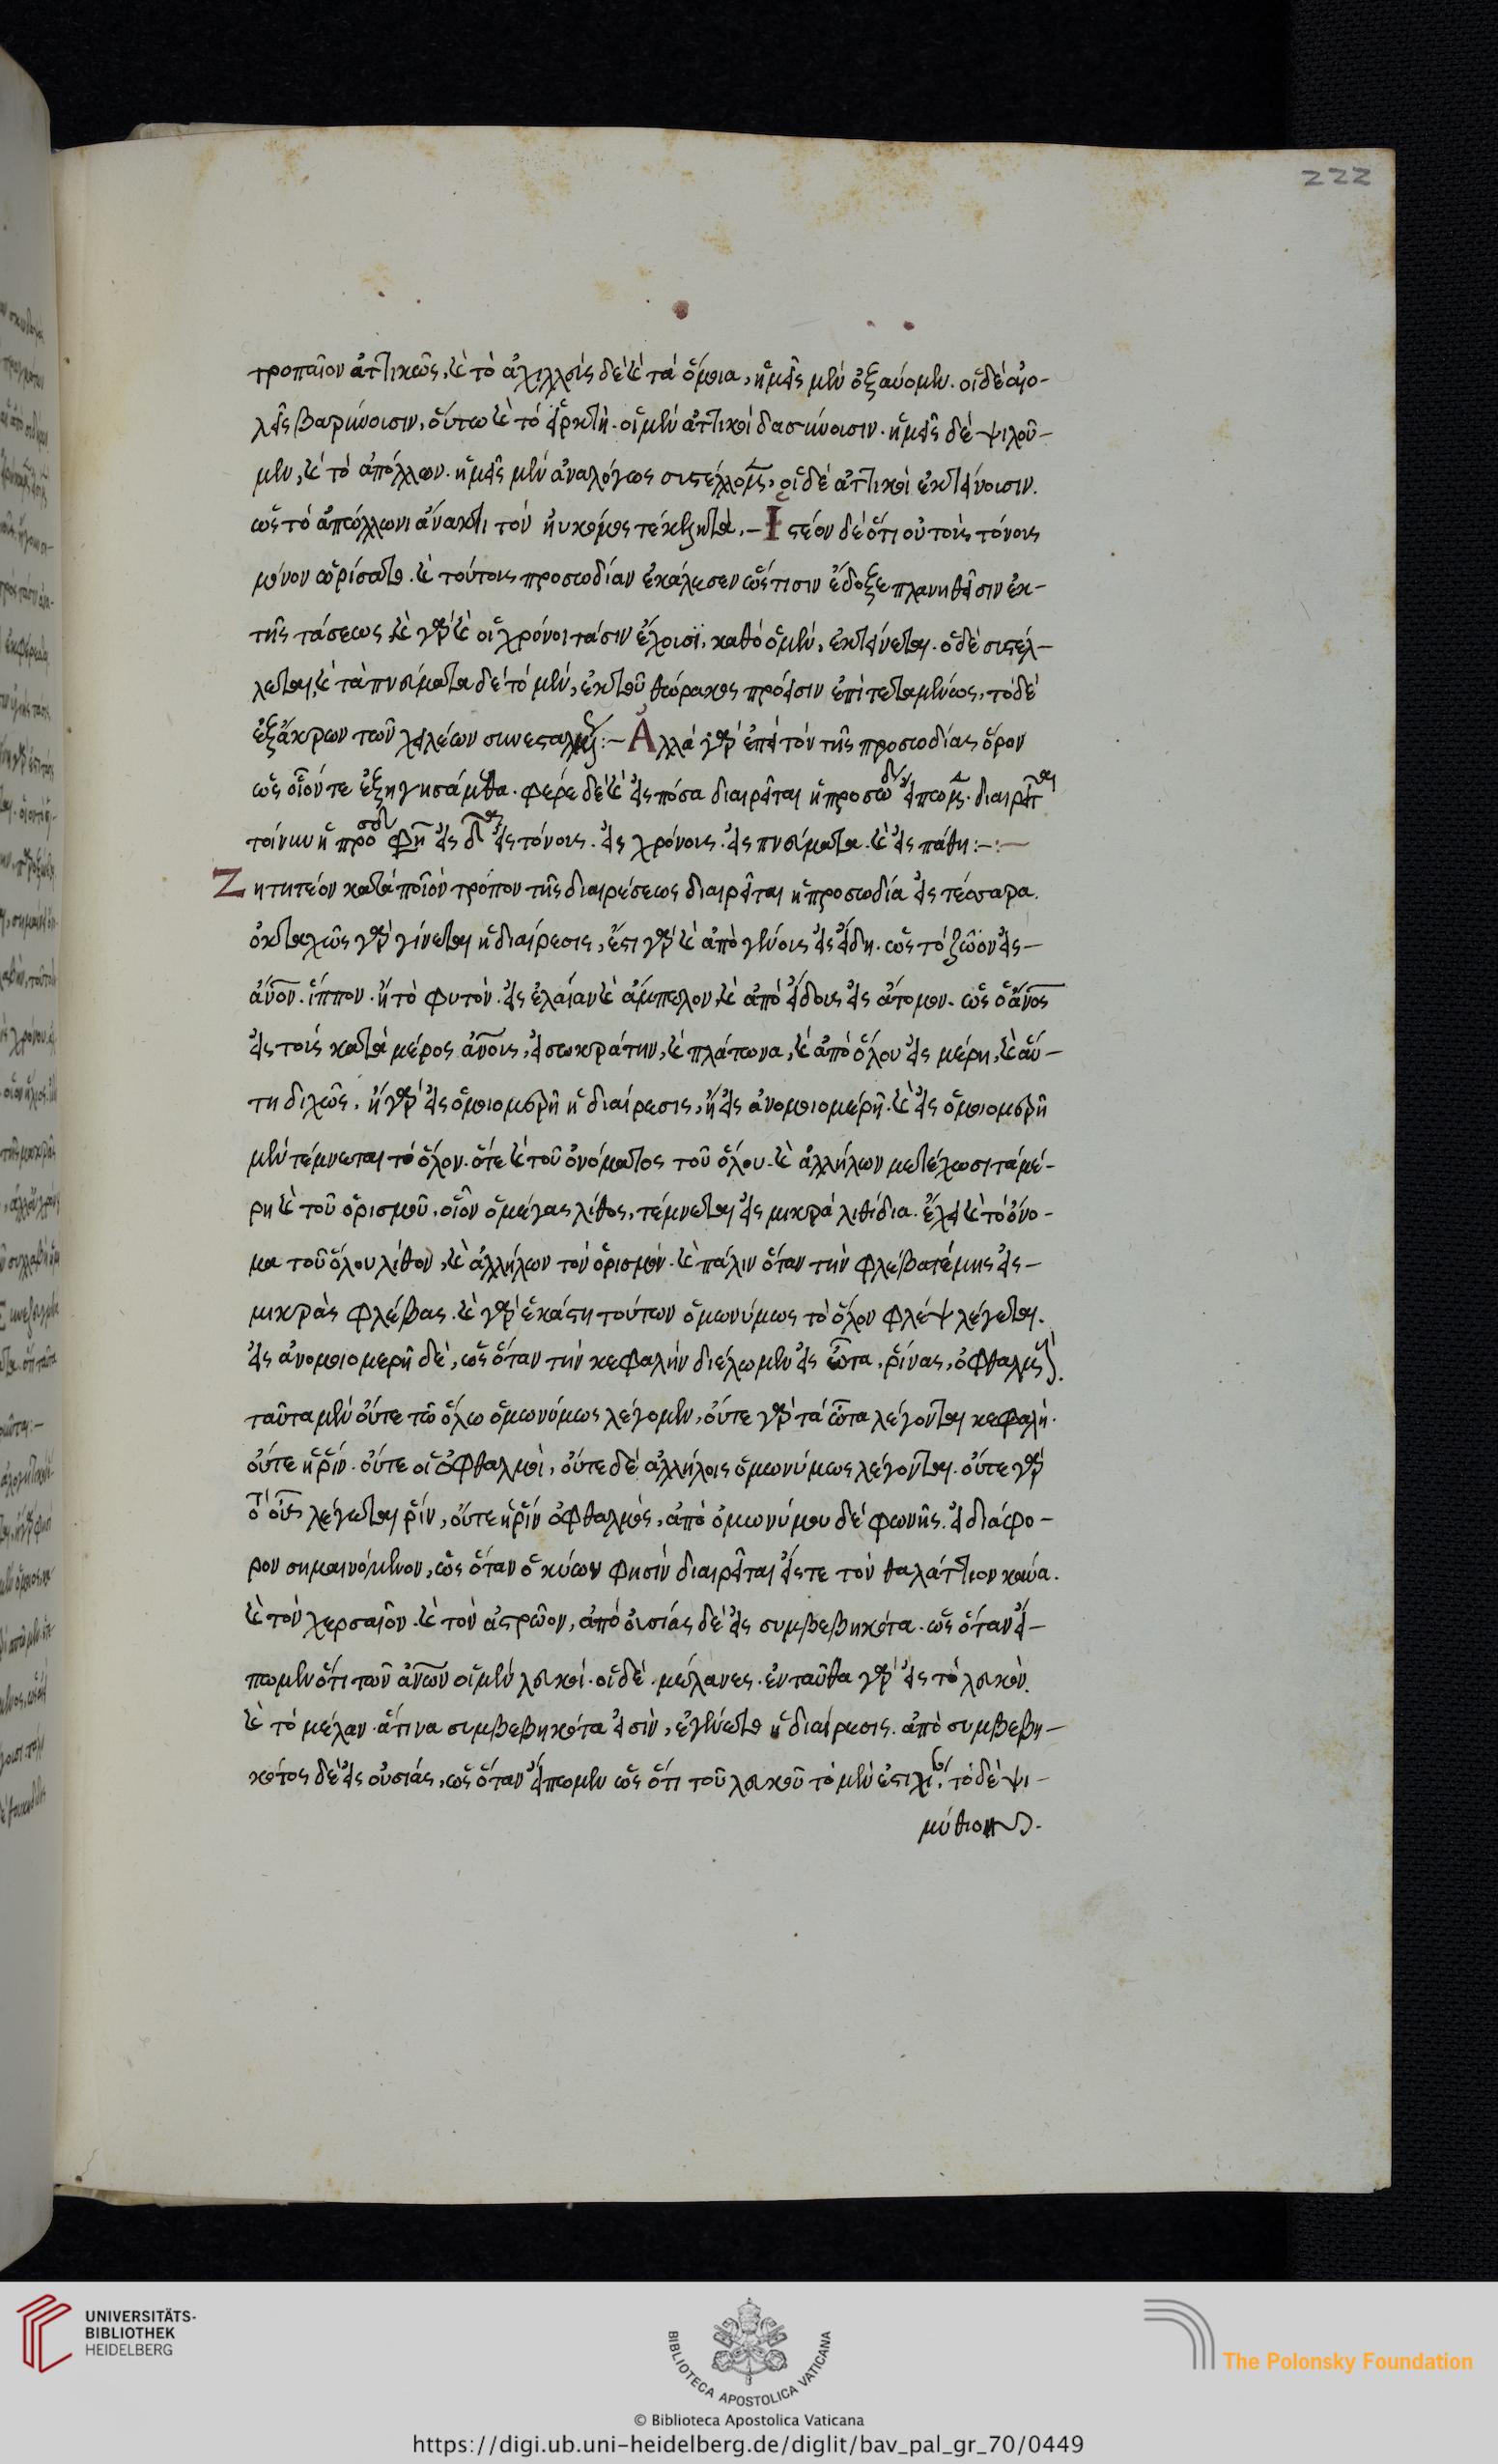 222
τροπαῖον ἀττικῶς, καὶ τὸ ἀχιλλεὺς δὲ καὶ τὰ ὅμοια, ἡμεῖς μὲν ὀξύνομεν. οἱ δὲ αἰο-
λεῖς βαρύνουσιν, οὕτω καὶ τὸ εἱρκτὴ. οἱ μὲν ἀττικοὶ δασύνουσιν. ἡμεῖς δὲ ψιλοῦ-
μεν, καὶ τὸ ἀπόλλων. ἡμεῖς μὲν ἀναλόγως συστέλλομεν, οἱ δὲ ἀττικοὶ ἐκτείνουσιν.
ὡς τὸ ἀπόλλωνι ἄνακτι τὸν ἠυκομος τέκε λητώ.- Ἰστέον δὲ ὅτι οὐ τοὺς τόνους
μόνον ὡρίσατο. καὶ τούτους προσωδίαν ἐκάλεσεν ὥς τισιν ἔδοξε πλανηθεῖσιν ἐκ-
τῆς τάσεως καὶ γὰρ καὶ οἱ χρόνοι τάσιν ἔχουσι, καθὸ ὁ μὲν, ἐκτείνεται. ὁ δὲ συστέλ-
λεται, καὶ τὰ πνεύματα δὲ τὸ μὲν, ἐκ τοῦ θώρακος πρόεισιν ἐπιτεταμένως, τὸ δὲ
ἐξ ἄκρων τῶν χειλέων συνεσταλμένως:- Ἀλλὰ γὰρ ἐπεὶ τὸν τῆς προσωδίας ὅρον
ὡς οἷόν τε ἐξηγησάμεθα. φέρε δὲ καὶ εἰς πόσα διαιρεῖται ἡ προσωδία εἴπωμεν. διαιρεῖται
τοίνυν ἡ προσωδία φη εἰς δ εἰς τόνους. εἰς χρόνους. εἰς πνεύματα. καὶ εἰς πάθη:-:-
Ζητητέον κατὰ ποῖον τρόπον τῆς διαιρέσεως διαιρεῖται ἡ προσωδία εἰς τέσσαρα.
ὀκταχῶς γὰρ γίνεται ἡ διαίρεσις, ἔστι γὰρ καὶ ἀπὸ γένους εἰς εἴδη. ὡς τὸ ζῶον εἰς-
ἄνον. ἵππον. ἢ τὸ φυτὸν. εἰς ἐλαίαν καὶ ἄμπελον καὶ ἀπὸ εἴδους εἰς ἄτομον. ὡς ὁ ἄνος
εἰς τοὺς κατὰ μέρος ἄνους, εἰ σωκράτην, καὶ πλάτωνα, καὶ ἀπὸ ὅλου εἰς μέρη, καὶ αὕ-
τη διχῶς. ἢ γὰρ εἰς ὁμοιομερῆ ἡ διαίρεσις, ἢ εἰς ἀνομοιομερῆ. καὶ εἰς ὁμοιομερῆ
μὲν τέμνεται τὸ ὅλον. ὅτε καὶ τοῦ ὀνόματος τοῦ ὅλου. καὶ ἀλλήλων μετέχωσι τὰ μέ-
ρη καὶ τοῦ ὁρισμοῦ. οἷον ὁ μέγας λίθος, τέμνεται εἰς μικρὰ λιθίδια. ἔχει καὶ τὸ ὄνο-
μα τοῦ ὅλου λίθου, καὶ ἀλλήλων τὸν ὁρισμόν. καὶ πάλιν ὅταν τὴν φλέβα τέμης εἰς-
μικρὰς φλέβας. καὶ γὰρ ἑκάστη τούτων ὁμωνύμως τὸ ὅλον φλέψ λέγεται.
εἰς ἀνομοιομερῆ δὲ, ὡς ὅταν τὴν κεφαλὴν διέλωμεν εἰς ὦτα, ῥίνας, ὀφθαλμούς.
ταῦτα μὲν οὔτε τῶ ὅλω ὁμωνύμως λέγομεν, οὔτε γὰρ τὰ ὦτα λέγονται κεφαλὴ.
οὔτε ἡ ῥὶν. οὔτε οἱ ὀφθαλμοὶ, οὔτε δὲ ἀλλήλοις ὁμωνύμως λέγονται. οὔτε γὰρ
τὸ οὖς λέγεται ῥίν, οὔτε ἡ ῥὶν ὀφθαλμὸς, ἀπὸ ὁμωνύμου δὲ φωνῆς. εἰ διάφο-
ρον σημαινόμενον, ὡς ὅταν ὁ κύων φησὶν διαιρεῖται εἴς τε τὸν θαλάττιον κύνα.
καὶ τὸν χερσαῖον. καὶ τὸν ἀστρῶον, ἀπὸ οὐσίας δὲ εἰς συμβεβηκότα. ὡς ὅταν εἴ-
πωμεν ὅτι τῶν ἀνων οἱ μὲν λευκοὶ. οἱ δὲ. μέλανες. ἐνταῦθα γὰρ εἰς τὸ λευκὸν.
καὶ τὸ μέλαν. ἅτινα συμβεβηκότα εἰσὶν, ἐγένετο ἡ διαίρεσις. ἀπὸ συμβεβη-
κότος δὲ εἰς οὐσίας, ὡς ὅταν εἴπωμεν ὡς ὅτι τοῦ λευκοῦ τὸ μὲν ἐστι, τὸ δὲ ψι-
μύθιον.
UNIVERSITÄTS-
BIBLIOTHEK
HEIDELBERG
BIBLIOTECA APOSTOLICA VATICANA
The Polonsky Foundation
© Biblioteca Apostolica Vaticana
https://digi.ub.uni-heidelberg.de/diglit/bav_pal_gr_70/0449